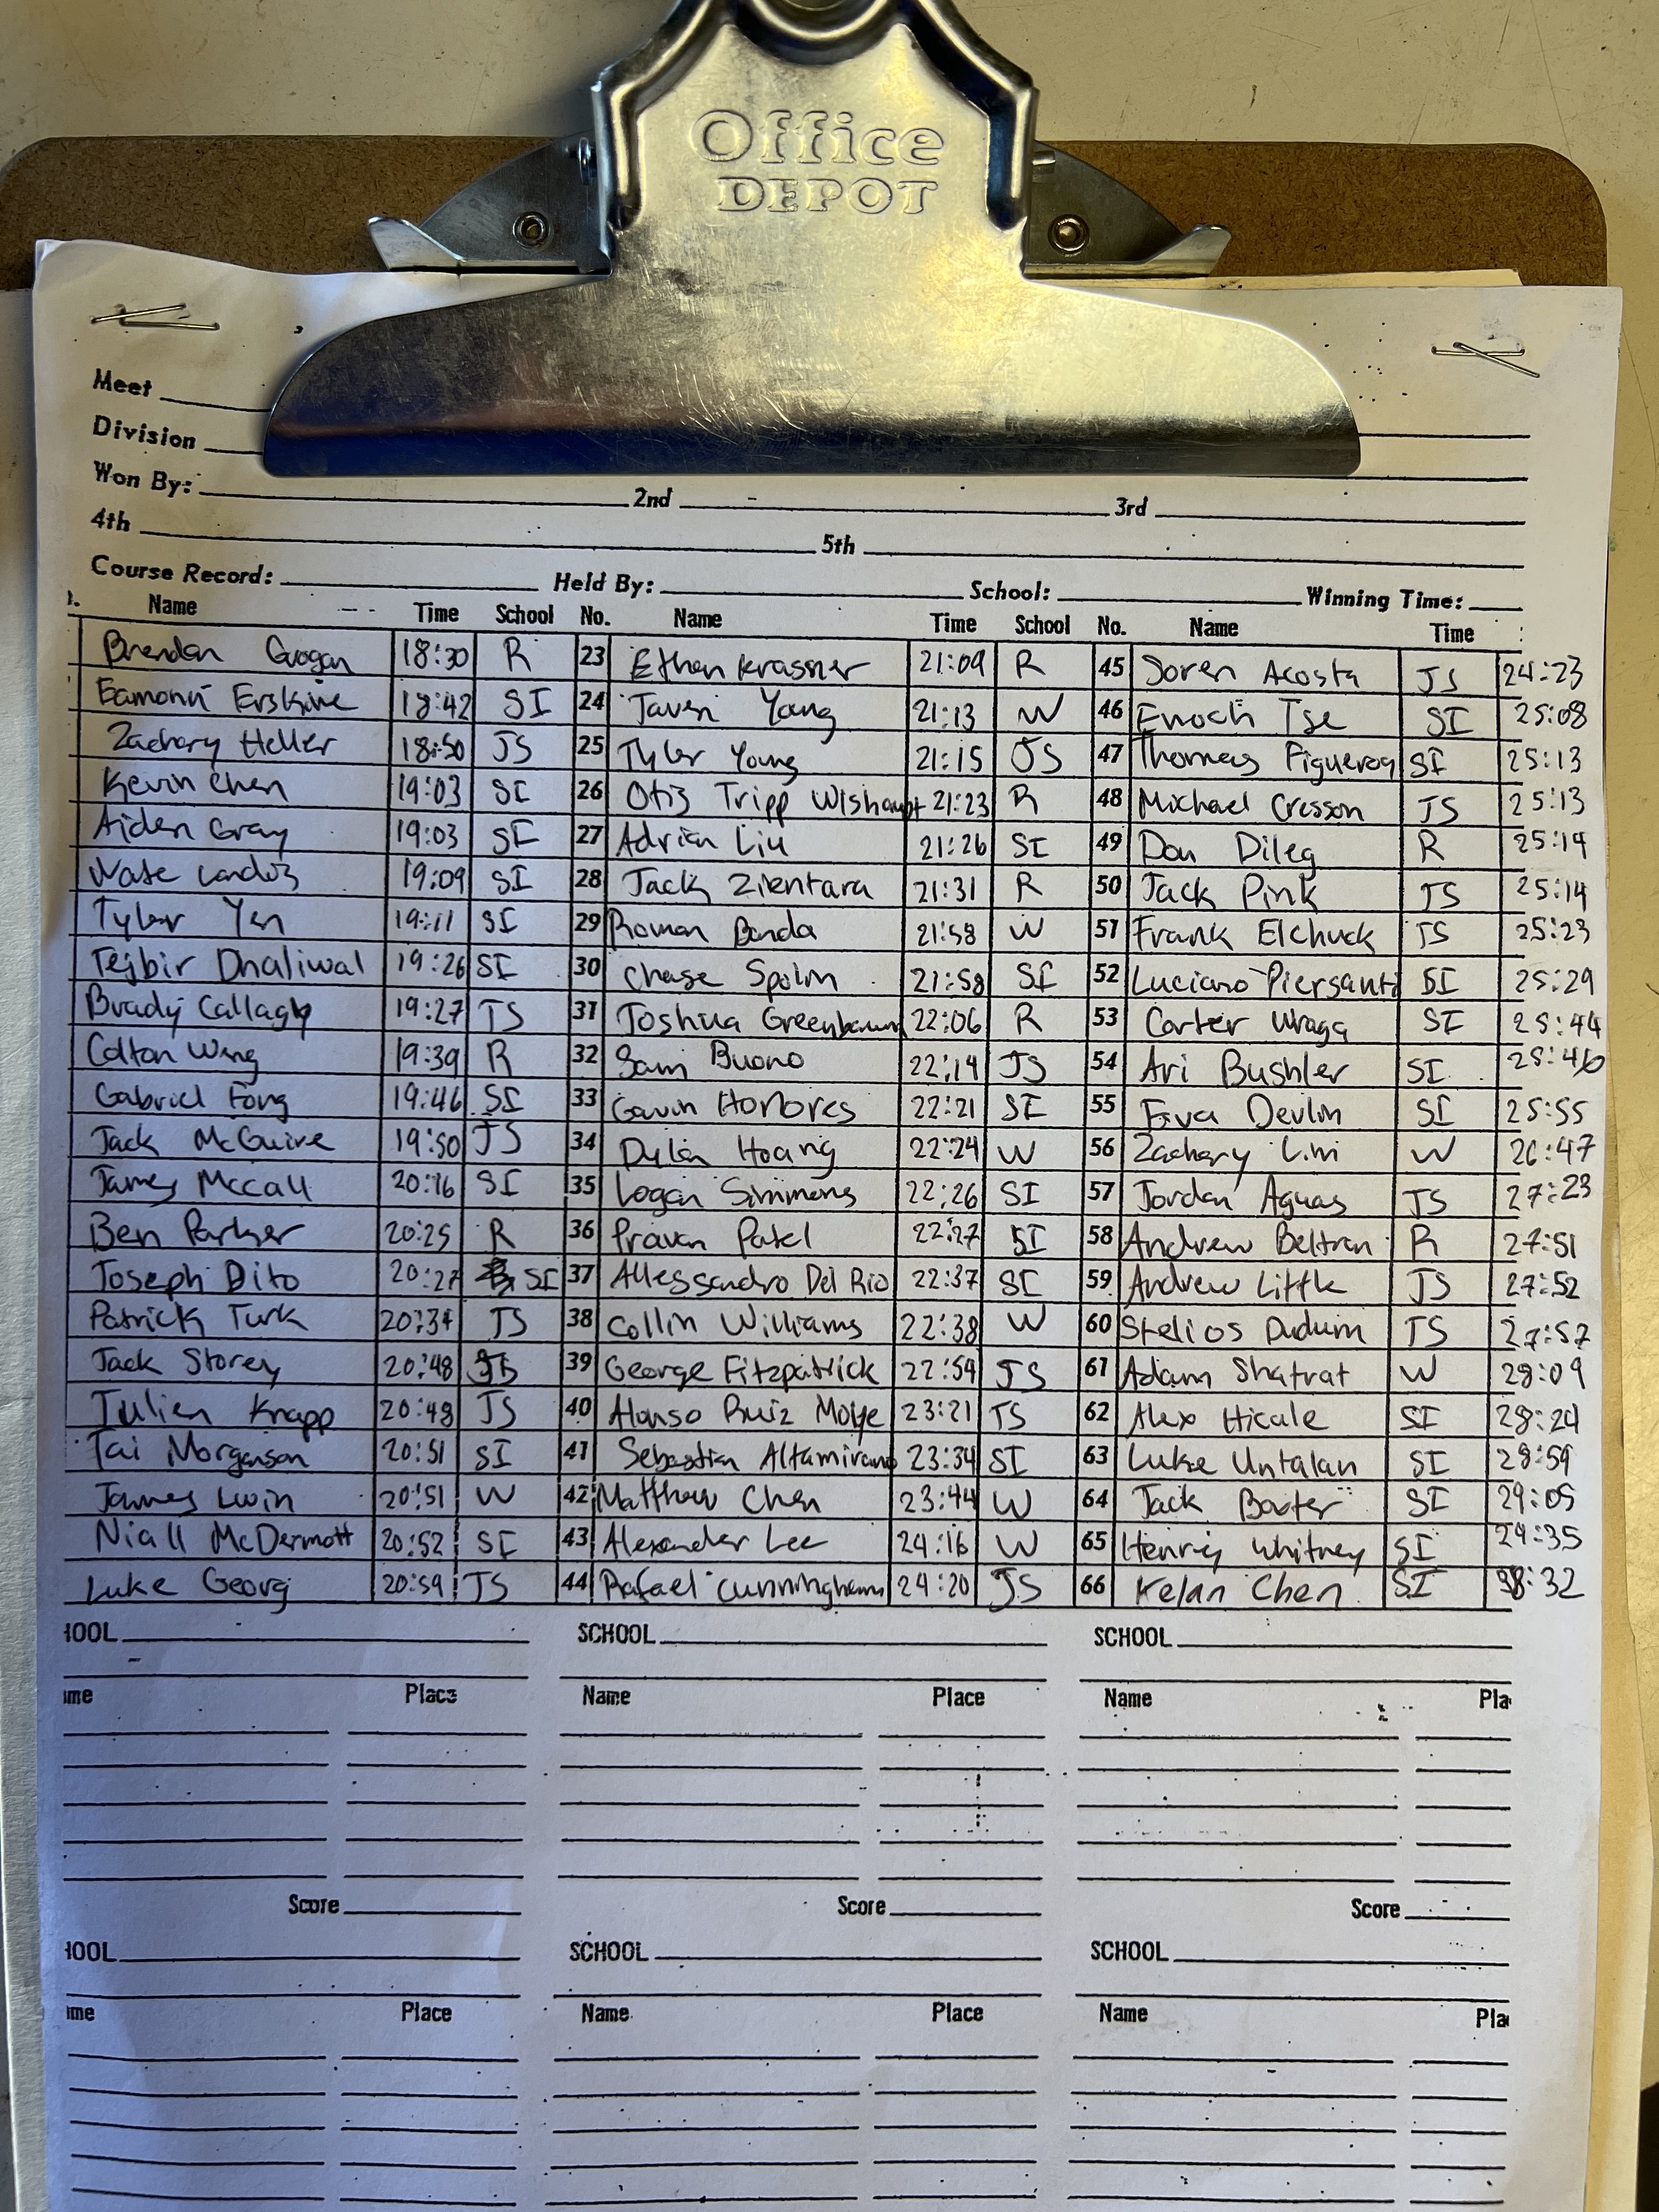 Office
DEPOT
Meet
Division
Won By: 2nd 3rd
4th 5th
Course Record: Held By: School: Winning Time:
Name Time School No. Name Time School No. Name Time
Brendan Grogan 18:30 R 23 Ethan Krasner 21:09 R 45 Soren Acosta JS 24:23
Eamonn Erskine 18:42 SI 24 Taven Yang 21:13 W 46 Enoch Tse SI 25:08
Zachary Heller 18:50 JS 25 Tyler Young 21:15 JS 47 Thomas Figueroa SI 25:13
Kevin Chen 19:03 SI 26 Otis Tripp Wishaupt 21:23 R 48 Michael Cresson JS 25:13
Aiden Gray 19:03 SI 27 Adrian Liu 21:26 SI 49 Dan Dileg R 25:14
Nate 19:09 SI 28 Jack Zientara 21:31 R 50 Jack Pink JS 25:14
Tyler Yen 19:11 SI 29 Roman Banda 21:58 W 51 Frank Elchuck JS 25:23
Tejbir Dhaliwal 19:26 SI 30 Chase Spolm 21:58 SI 52 Luciano Piersanti SI 25:29
Brady Callagy 19:27 JS 31 Joshua Greenbaum 22:06 R 53 Carter Wraga SI 25:44
Colton Wing 19:39 R 32 Sam Buono 22:14 JS 54 Ari Bushler SI 25:46
Gabriel Fong 19:46 SI 33 Gavin Honores 22:21 SI 55 Devlin SI 25:55
Jack McGuire 19:50 JS 34 Dylan Hoang 22:24 W 56 Zachary Lim W 26:47
James Mccall 20:16 SI 35 Logan Simmons 22:26 SI 57 Jordan Aguas JS 27:23
Ben Parker 20:25 R 36 Pravan Patel 22:27 SI 58 Andrew Beltran R 27:51
Joseph Dito 20:27 SI 37 Allessandro Del Rio 22:37 SI 59 Andrew Little JS 27:52
Patrick Turk 20:34 JS 38 Collin Williams 22:38 W 60 Stelios Dudum JS 27:57
Jack Storey 20:48 JS 39 George Fitzpatrick 22:54 JS 61 Adam Shatrat W 28:09
Julien Knapp 20:48 JS 40 Alonso Ruiz Moye 23:21 JS 62 Alex Hicale SI 28:24
Tai Morganson 20:51 SI 41 Sebastian Altamirano 23:34 SI 63 Luke Untalan SI 28:59
James Lwin 20:51 W 42 Matthew Chen 23:44 W 64 Jack Baxter SI 29:05
Niall McDermott 20:52 SI 43 Alexander Lee 24:16 W 65 Henry Whitney SI 29:35
Luke Georgi 20:59 JS 44 Rafael Cunningham 24:20 JS 66 Kelan Chen SI 38:32
HOOL SCHOOL SCHOOL
ame Place Name Place Name Pla
Score Score Score
HOOL SCHOOL SCHOOL
ame Place Name Place Name Pla